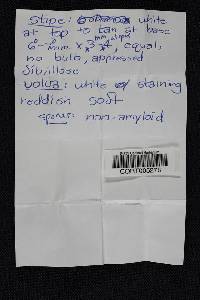 Stipe: white
at top to tan at base
equal,
no bulb, appressed
fibrillose
volva: white w/ staining
reddish soft
spores: non-amyloid